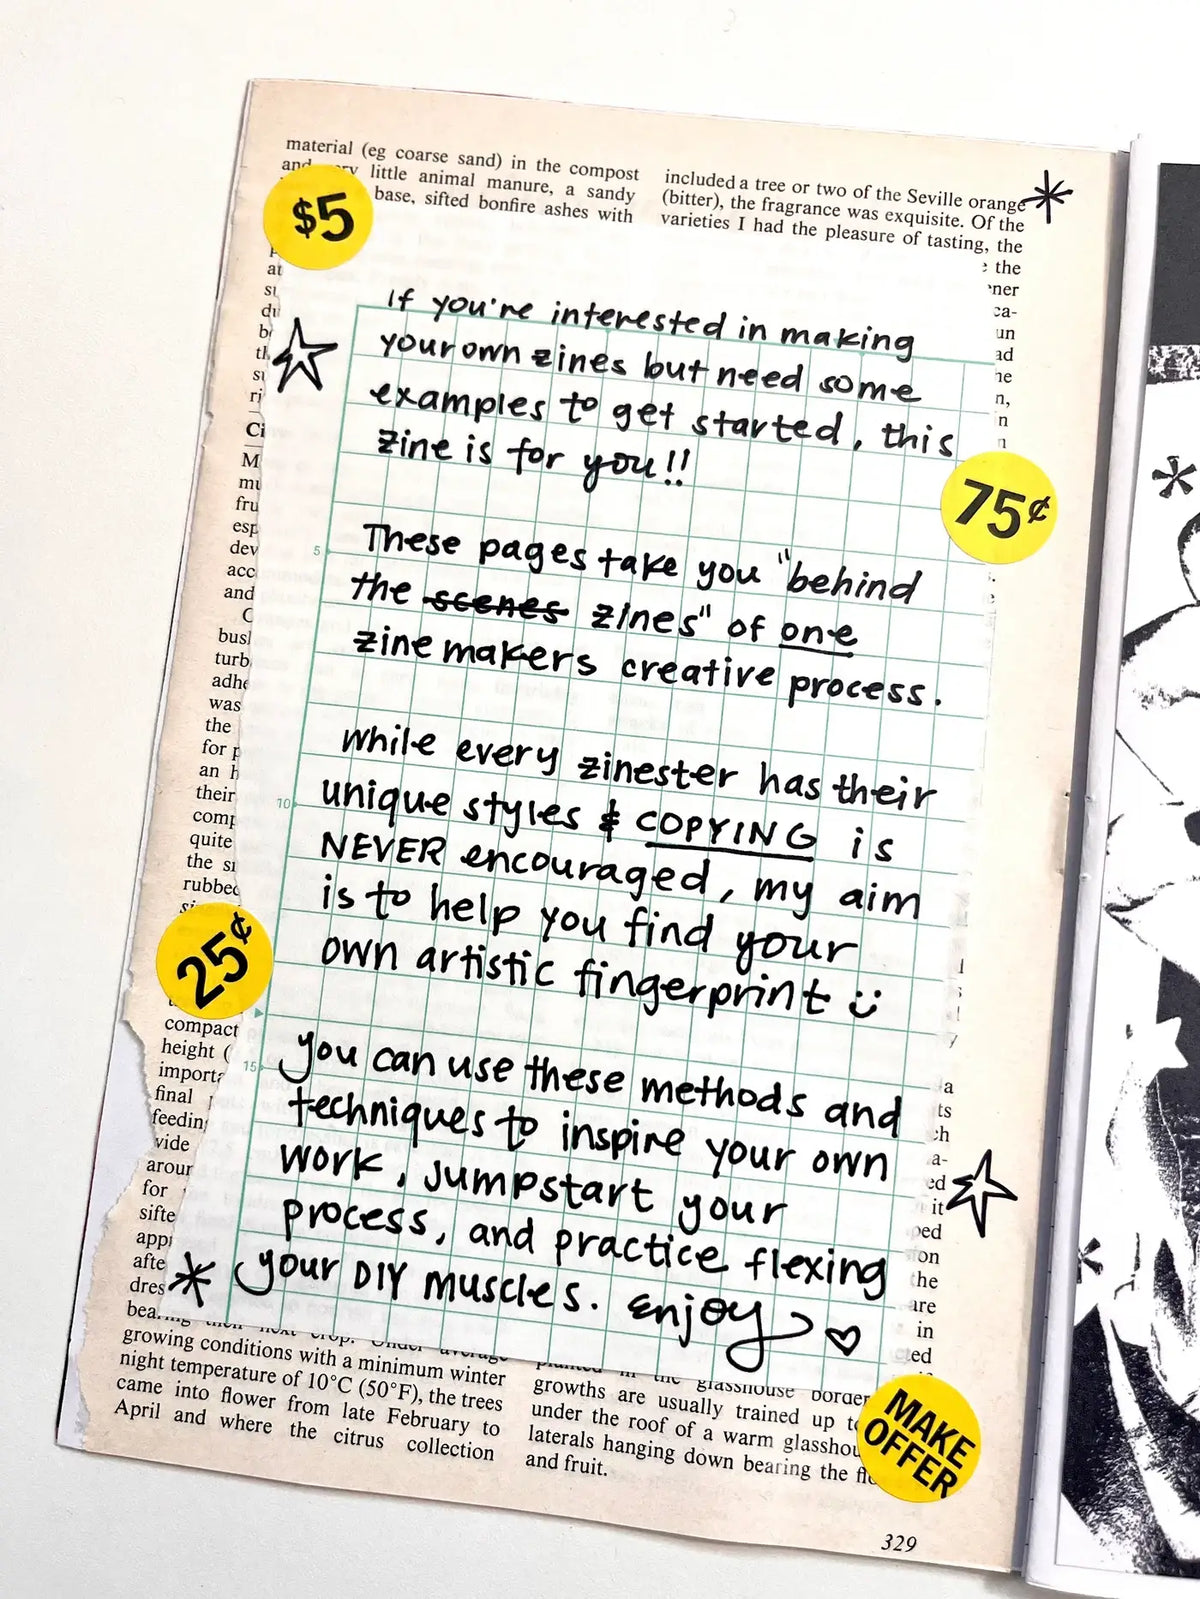 material (eg coarse sand) in the compost
and very little animal manure, a sandy
base, sifted bonfire ashes with
included a tree or two of the Seville orange
(bitter), the fragrance was exquisite. Of the
varieties I had the pleasure of tasting, the
the
$5
If you're interested in making
your own zines but need some
examples to get started, this
zine is for you!!
75¢
5
These pages take you "behind
the scenes zines" of one
zine makers creative process.
While every zinester has their
10
unique styles & COPYING is
NEVER encouraged, my aim
is to help you find your
own artistic fingerprint
25¢
You can use these methods and
15
techniques to inspire your own
work, jumpstart your
process, and practice flexing
your DIY muscles. Enjoy
and
was
the
for
an
their
quite
the
compact
height (
final
vide
for
a
it
the
are
in
growing conditions with a minimum winter
night temperature of 10°C (50°F), the trees
came into flower from late February to
April and where the citrus collection
the glasshouse border
growths are usually trained up
under the roof of a warm
laterals hanging down bearing the
and fruit.
MAKE
OFFER
329